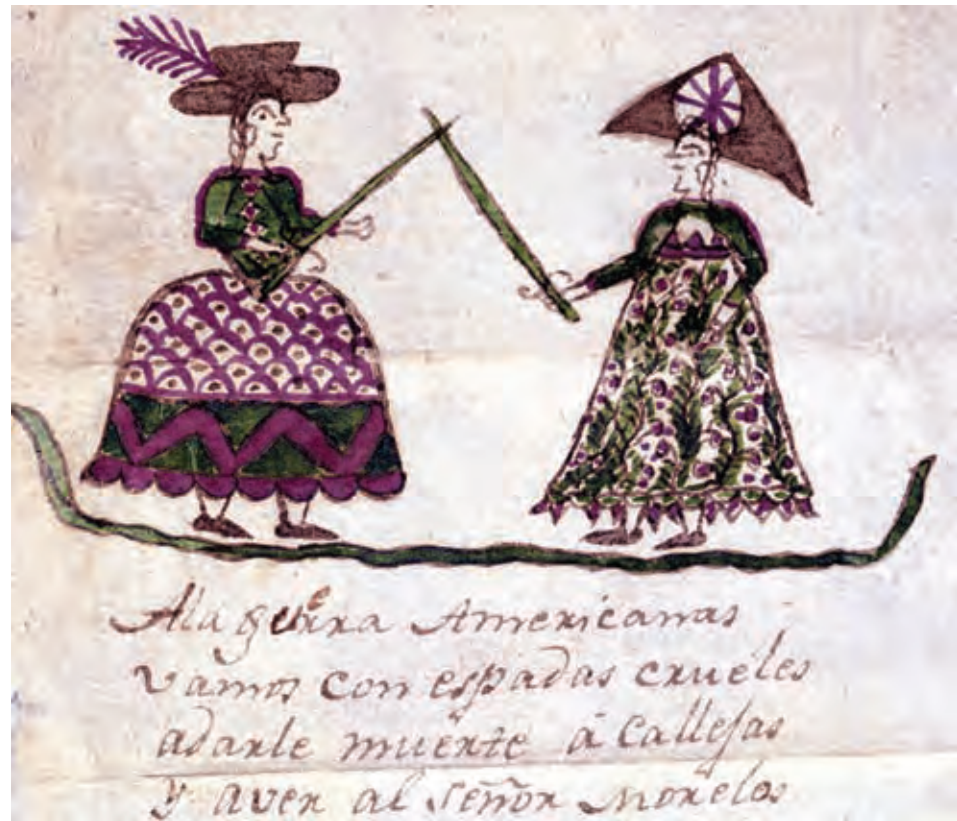 A la guerra Americanas
vamos con espadas crueles
adarle muerte á Callejas
y aver al señor Morelos